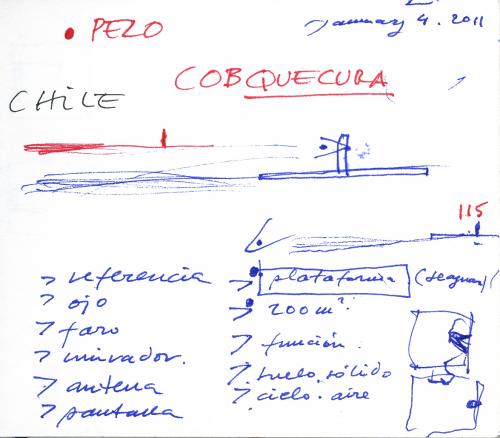 • PEZO
January 4. 2011
COBQUECURA
CHiLE
115
> referencia
> ojo
> faro
> mirador.
> antena
> pantalla
> plataforma
> 200 m².
> función.
> suelo.sólido
> cielo.aire